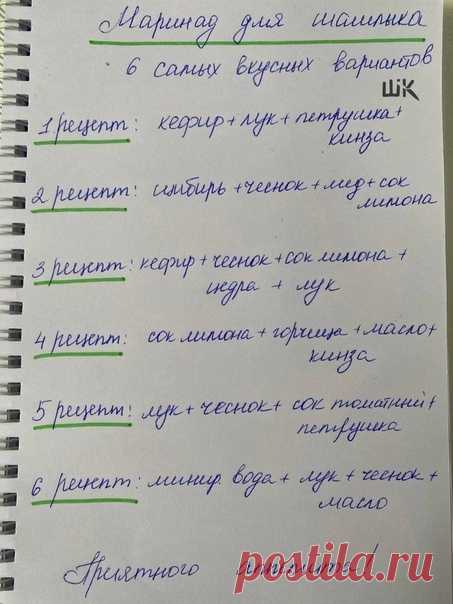 Маринад для шашлыка
6 самых вкусных вариантов
ШК
1 рецепт: кефир + лук + петрушка +
кинза
2 рецепт: имбирь + чеснок + мед + сок
лимона
3 рецепт: кефир + чеснок + сок лимона +
цедра + лук
4 рецепт: сок лимона + горчица + масло +
кинза
5 рецепт: лук + чеснок + сок томатный +
петрушка
6 рецепт: минер. вода + лук + чеснок +
масло
Приятного аппетита!
postila.ru